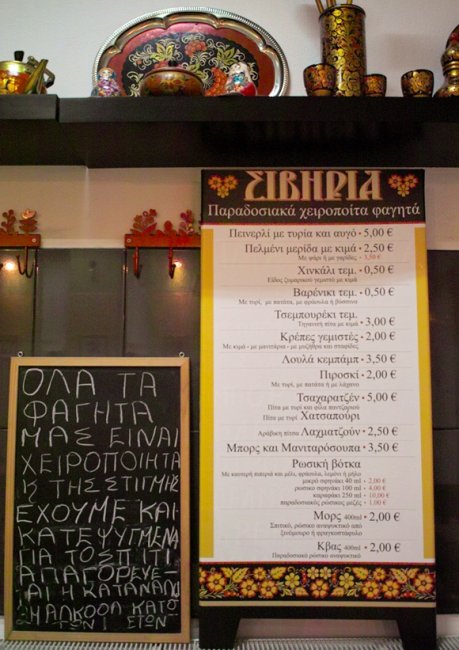 ΣΙΒΗΡΙΑ
Παραδοσιακά χειροποίτα φαγητά
Πεινερλί με τυρία και αυγό • 5,00 €
Πελμένι μερίδα με κιμά • 2,50 €
Με ψάρι ή με γαρίδες • 3,50 €
Χινκάλι τεμ. • 0,50 €
Είδος ζυμαρικού γεμιστό με κιμά
Βαρένικι τεμ. • 0,50 €
Με τυρί, με πατάτα, με φράουλα ή βύσσινο
Τσεμπουρέκι τεμ.
Τηγανιτή πίτα με κιμά • 3,00 €
Κρέπες γεμιστές • 2,00 €
Με κιμά - με μανιτάρια - με μυζήθρα και σταφίδες
Λουλά κεμπάμπ • 3,50 €
Πιροσκί • 2,00 €
Με τυρί, με πατάτα ή με λάχανο
Τσαχαρατζέν • 5,00 €
Πίτα με τυρί και φύλα παντζαριού
Πίτα με τυρί Χατσαπούρι
Αράβικη πίτσα Λαχματζούν • 2,50 €
Μπορς και Μανιταρόσουπα • 3,50 €
Ρωσική βότκα
Με καυτερή πιπεριά και μέλι, φράουλα, λεμόνι ή μήλο
μικρό σφηνάκι 40 ml • 2,00 €
ρώσικο σφηνάκι 100 ml • 4,00 €
καραφάκι 250 ml • 10,00 €
παραδοσιακός ρώσικος μεζές • 1,00 €
Μορς 400ml • 2,00 €
Σπιτικό, ρώσικο αναψυκτικό από
ξινόμουρο ή φραγκοστάφυλο
Κβας 400ml • 2,00 €
Παραδοσιακό ρώσικο αναψυκτικό
ΟΛΑ ΤΑ
ΦΑΓΗΤΑ
ΜΑΣ ΕΙΝΑΙ
ΧΕΙΡΟΠΟΙΗΤΑ
ΤΗΣ ΣΤΙΓΜΗΣ
ΕΧΟΥΜΕ ΚΑΙ
ΚΑΤΕΨΥΓΜΕΝΑ
ΓΙΑ ΤΟ ΣΠΙΤΙ
ΑΠΑΓΟΡΕΥΕ-
ΤΑΙ Η ΚΑΤΑΝΑΛΩ
ΣΗ ΑΛΚΟΟΛ ΚΑΤΩ
ΤΩΝ ΕΤΩΝ